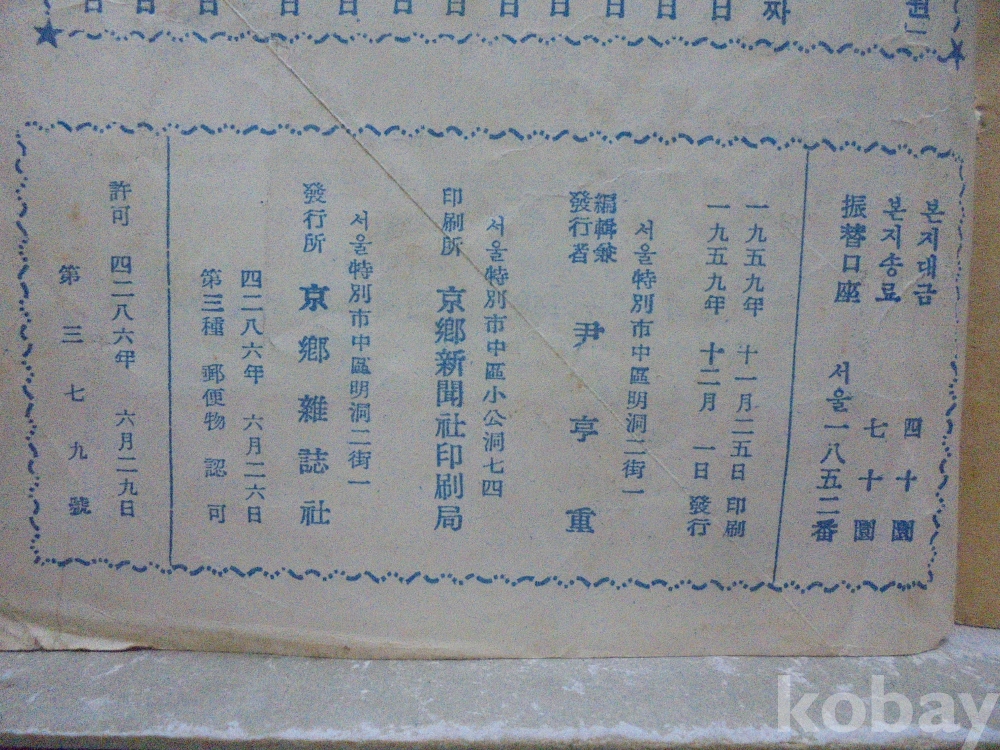 원
짜
日 日 日 日 日 日 日 日 日 日 日 日
본지대금 四十圜
본지송료 七十圜
振替口座 서울一八五二番
一九五九年 十一月二五日 印刷
一九五九年 十二月 一日 發行
서울特別市中區明洞二街一
編輯兼
發行者 尹亨重
서울特別市中區小公洞七四
印刷所 京鄕新聞社印刷局
서울特別市中區明洞二街一
發行所 京鄕雜誌社
四二八六年 六月二六日
第三種 郵便物 認可
許可 四二八六年 六月二九日
第三七九號
kobay